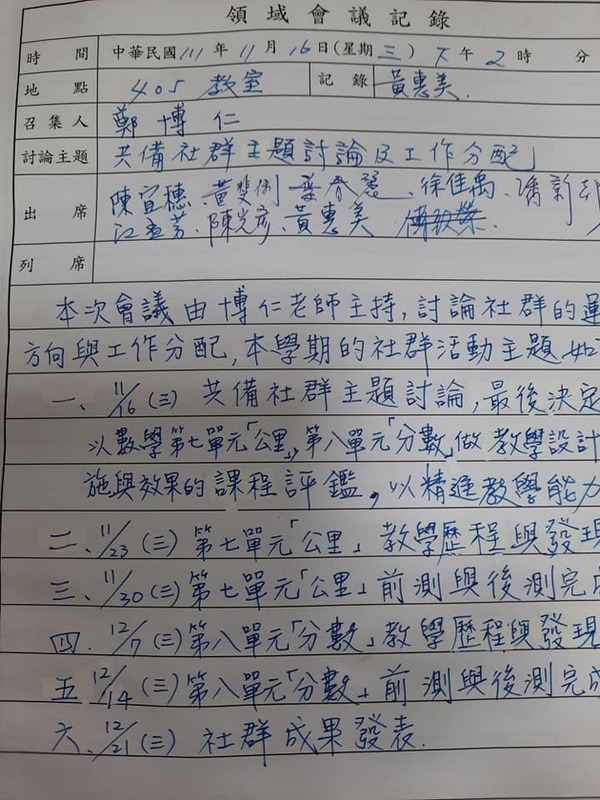 領域會議記錄
時間 中華民國 111 年 11 月 16 日(星期 三) 下 午 2 時 分
地點 405 教室 記錄 黃惠美
召集人 鄭博仁
討論主題 共備社群主題討論及工作分配
出席 陳宜穗、黃雙俐 、徐佳禹、
江孟芳、陳光彥、黃惠美
列席
本次會議由博仁老師主持,討論社群的運
方向與工作分配,本學期的社群活動主題如
一、11/16(三) 共備社群主題討論,最後決定
以數學第七單元「公里」,第八單元「分數」做教學設計
施與效果的課程評鑑,以精進教學能力
二、11/23(三) 第七單元「公里」教學歷程與發現
三、11/30(三) 第七單元「公里」前測與後測完成
四. 12/7(三) 第八單元「分數」教學歷程與發現
五 12/14(三) 第八單元「分數」前測與後測完成
六、12/21(三) 社群成果發表.